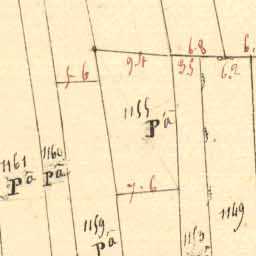 6.8
9.4
55
6.2
6.
5.6
1155
Pā
1161
Pā
1160
Pā
7.6
1159
pā
1149